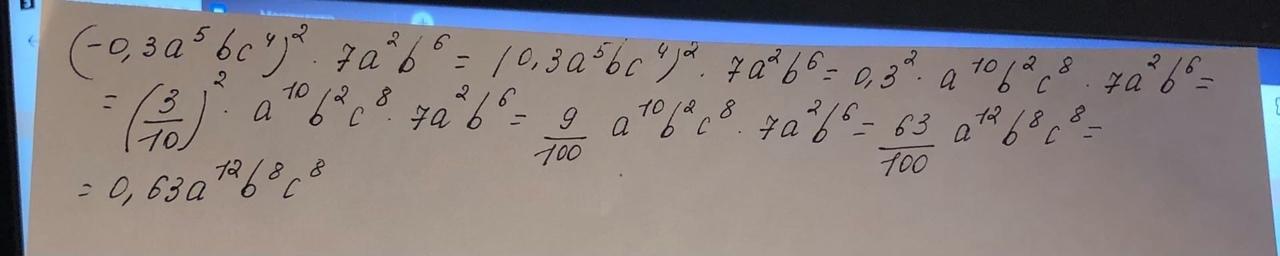 (-0,3a⁵bc⁴)² · 7a²b⁶ = (0,3a⁵bc⁴)² · 7a²b⁶ = 0,3² · a¹⁰b²c⁸ · 7a²b⁶ =
= (3/10)² · a¹⁰b²c⁸ · 7a²b⁶ = 9/100 a¹⁰b²c⁸ · 7a²b⁶ = 63/100 a¹²b⁸c⁸ =
= 0,63a¹²b⁸c⁸